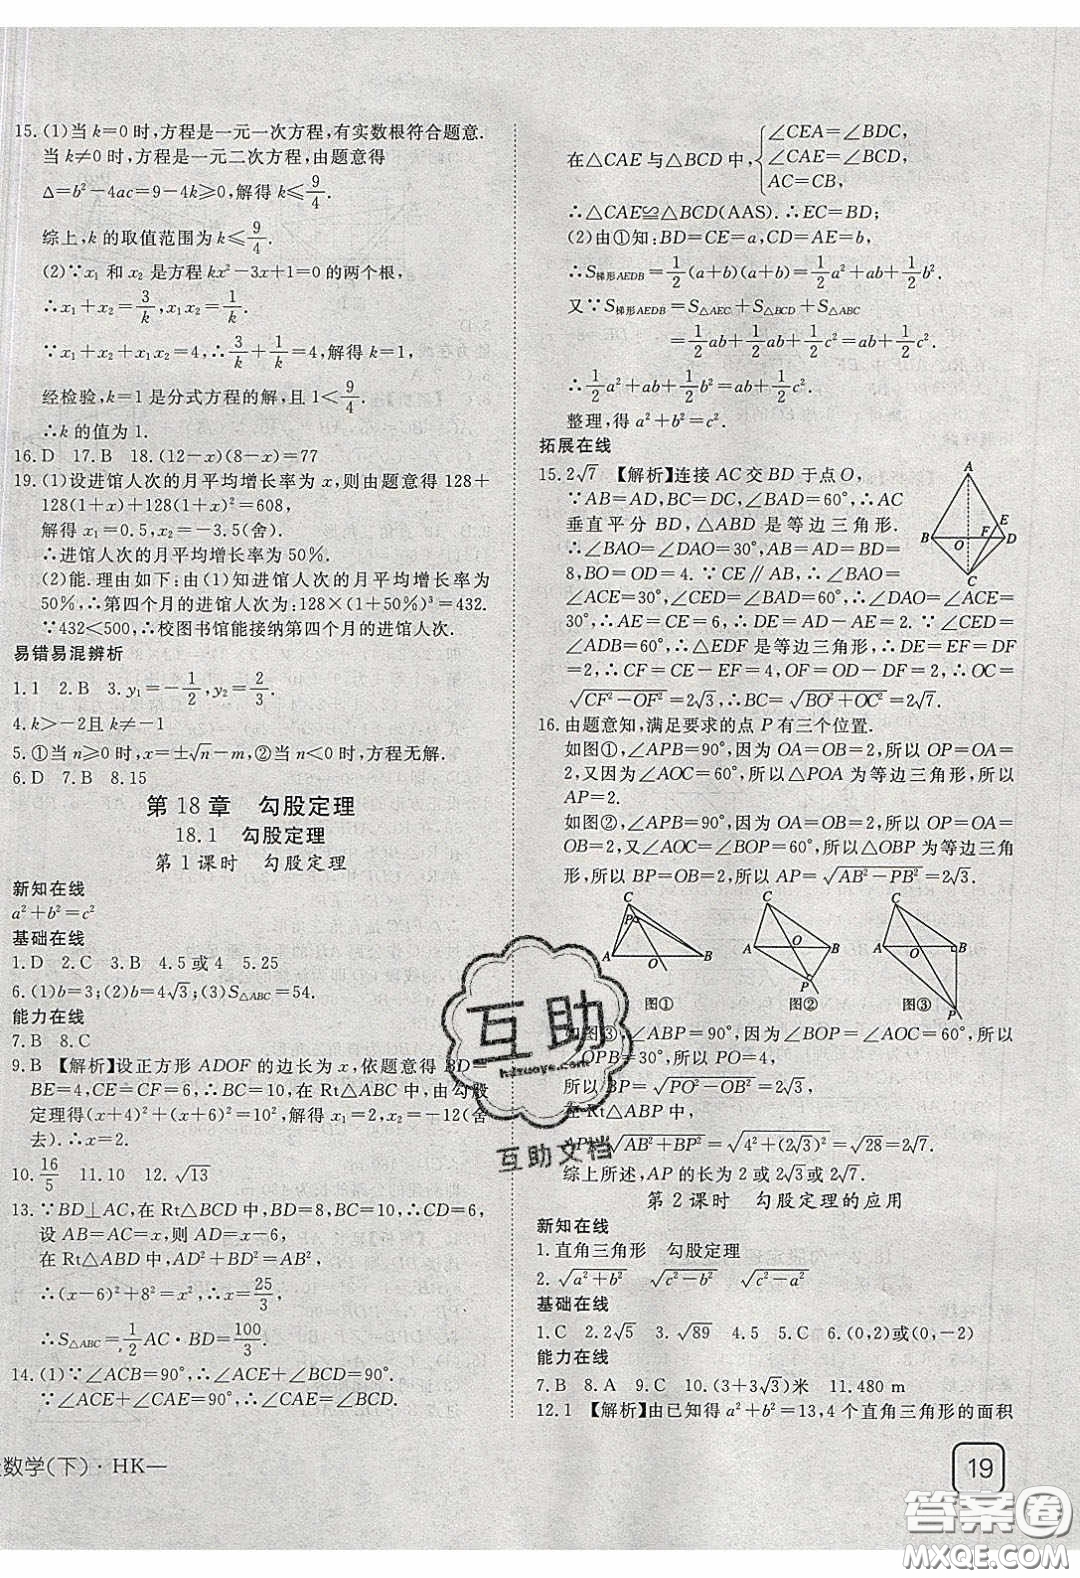 15.(1)当 k=0 时,方程是一元一次方程,有实数根符合题意.
当 k≠0 时,方程是一元二次方程,由题意得
Δ=b²-4ac=9-4k⩾0,解得 k⩽9/4.
综上,k 的取值范围为 k⩽9/4.
(2)∵x₁ 和 x₂ 是方程 kx²-3x+1=0 的两个根,
∴x₁+x₂=3/k,x₁x₂=1/k.
∵x₁+x₂+x₁x₂=4,∴3/k+1/k=4,解得 k=1.
经检验,k=1 是分式方程的解,且 1<9/4.
∴k 的值为 1.
16.D 17.B 18.(12-x)(8-x)=77
19.(1)设进馆人次的月平均增长率为 x,由题意得 128+
128(1+x)+128(1+x)²=608,
解得 x₁=0.5,x₂=-3.5(舍).
∴进馆人次的月平均增长率为 50%.
(2)能.理由如下:由(1)知进馆人次的月平均增长率为
50%,∴第四个月的进馆人次为:128×(1+50%)³=432.
∵432<500,∴校图书馆能接纳第四个月的进馆人次.
易错易混辨析
1.1 2.B 3.y₁=-1/2,y₂=2/3.
4.k>-2且k≠-1
5.①当 n⩾0 时,x=±√n-m,②当 n<0 时,方程无解.
6.D 7.B 8.15
第 18 章 勾股定理
18.1 勾股定理
第 1 课时 勾股定理
新知在线
a²+b²=c²
基础在线
1.D 2.C 3.B 4.5或4 5.25
6.(1)b=3;(2)b=4√3;(3)S△ABC=54.
能力在线
7.B 8.C
9.B 【解析】设正方形 ADOF 的边长为 x,依题意得 BD=
BE=4,CE=CF=6,∴BC=10,在 Rt△ABC 中,由勾股
定理得(x+4)²+(x+6)²=10²,解得 x₁=2,x₂=-12(舍
去).∴x=2.
10.16/5 11.10 12.√13
13.∵BD⊥AC,在 Rt△BCD 中,BD=8,BC=10,∴CD=6,
设 AB=AC=x,则 AD=x-6,
在 Rt△ABD 中,AD²+BD²=AB²,
∴(x-6)²+8²=x²,∴x=25/3,
∴S△ABC=1/2AC·BD=100/3.
14.(1)∵∠ACB=90°,∴∠ACE+∠BCD=90°.
∵∠ACE+∠CAE=90°,∴∠CAE=∠BCD.
数学(下)·HK—
在△CAE 与△BCD 中,{∠CEA=∠BDC,
∠CAE=∠BCD,
AC=CB,
∴△CAE≌△BCD(AAS).∴EC=BD;
(2)由①知:BD=CE=a,CD=AE=b,
∴S梯形AEDB=1/2(a+b)(a+b)=1/2a²+ab+1/2b².
又∵S梯形AEDB=S△AEC+S△BCD+S△ABC
=1/2ab+1/2ab+1/2c²=ab+1/2c².
∴1/2a²+ab+1/2b²=ab+1/2c².
整理,得 a²+b²=c².
拓展在线
15.2√7 【解析】连接 AC 交 BD 于点 O,
∵AB=AD,BC=DC,∠BAD=60°,∴AC
垂直平分 BD,△ABD 是等边三角形.
∴∠BAO=∠DAO=30°,AB=AD=BD=
8,BO=OD=4.∵CE∥AB,∴∠BAO=
∠ACE=30°,∠CED=∠BAD=60°.∴∠DAO=∠ACE=
30°,∴AE=CE=6,∴DE=AD-AE=2.∵∠CED=
∠ADB=60°,∴△EDF是等边三角形,∴DE=EF=DF
=2,∴CF=CE-EF=4,OF=OD-DF=2,∴OC=
√CF²-OF²=2√3,∴BC=√BO²+OC²=2√7.
A
E
F
B
O
D
C
16.由题意知,满足要求的点 P 有三个位置.
如图①,∠APB=90°,因为 OA=OB=2,所以 OP=OA=
2,又∠AOC=60°,所以△POA 为等边三角形,所以
AP=2.
如图②,∠APB=90°,因为 OA=OB=2,所以 OP=OA
=2,因为∠AOC=∠BOP=60°,所以△OBP为等边三角
形,所以 BP=OB=OA=2,所以 AP=√AB²-PB²=2√3.
C
P
A
O
B
图①
C
A
O
B
P
图②
C
A
O
B
P
图③
如图③,∠ABP=90°,因为∠BOP=∠AOC=60°,所以
∠OPB=30°,所以 PO=4,
所以 BP=√PO²-OB²=2√3,
在 Rt△ABP 中,
AP=√AB²+BP²=√4²+(2√3)²=√28=2√7.
综上所述,AP 的长为 2 或 2√3或 2√7.
第 2 课时 勾股定理的应用
新知在线
1.直角三角形 勾股定理
2.√a²+b² √c²-b² √c²-a²
基础在线
1.C 2.2√5 3.√89 4.5 5.C 6.(0,2)或(0,-2)
能力在线
7.B 8.A 9.C 10.(3+3√3)米 11.480 m
12.1 【解析】由已知得 a²+b²=13,4 个直角三角形的面积
19
互助
hdzuoye.com
互助文档
答案圈
MXQE.COM